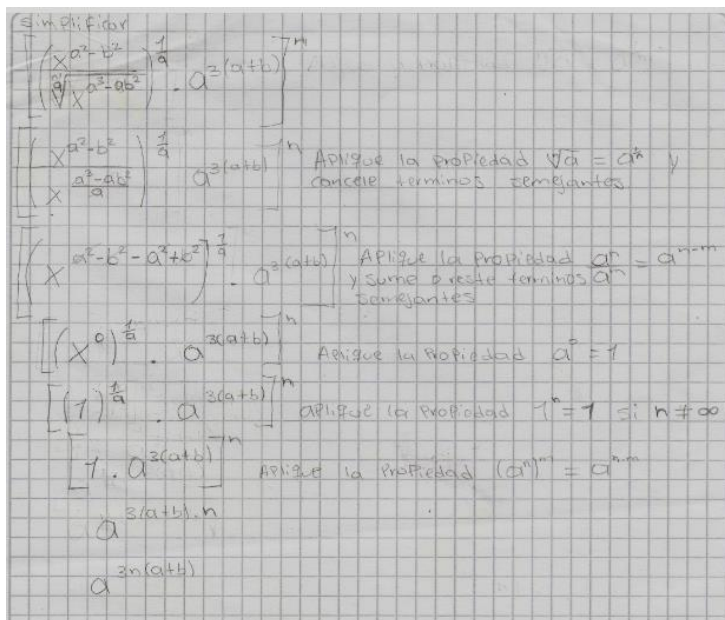 Simplificar
[(x^{a²-b²} / \sqrt[a]{x^{a³-ab²}})^{1/a} · a^{3(a+b)}]^n
[(x^{a²-b²} / x^{\frac{a³-ab²}{a}})^{1/a} a^{3(a+b)}]^n Aplique la propiedad \sqrt[n]{a} = a^{1/n} y
cancele terminos semejantes
[(x^{a²-b²-a²+b²})^{1/a} · a^{3(a+b)}]^n Aplique la propiedad a^n/a^m = a^{n-m}
y sume o reste terminos
semejantes
[(x^0)^{1/a} · a^{3(a+b)}]^n Aplique la propiedad a^0 = 1
[(1)^{1/a} · a^{3(a+b)}]^n aplique la propiedad 1^n = 1 si n ≠ ∞
[1 · a^{3(a+b)}]^n Aplique la Propiedad (a^n)^m = a^{n·m}
a^{3(a+b)·n}
a^{3n(a+b)}